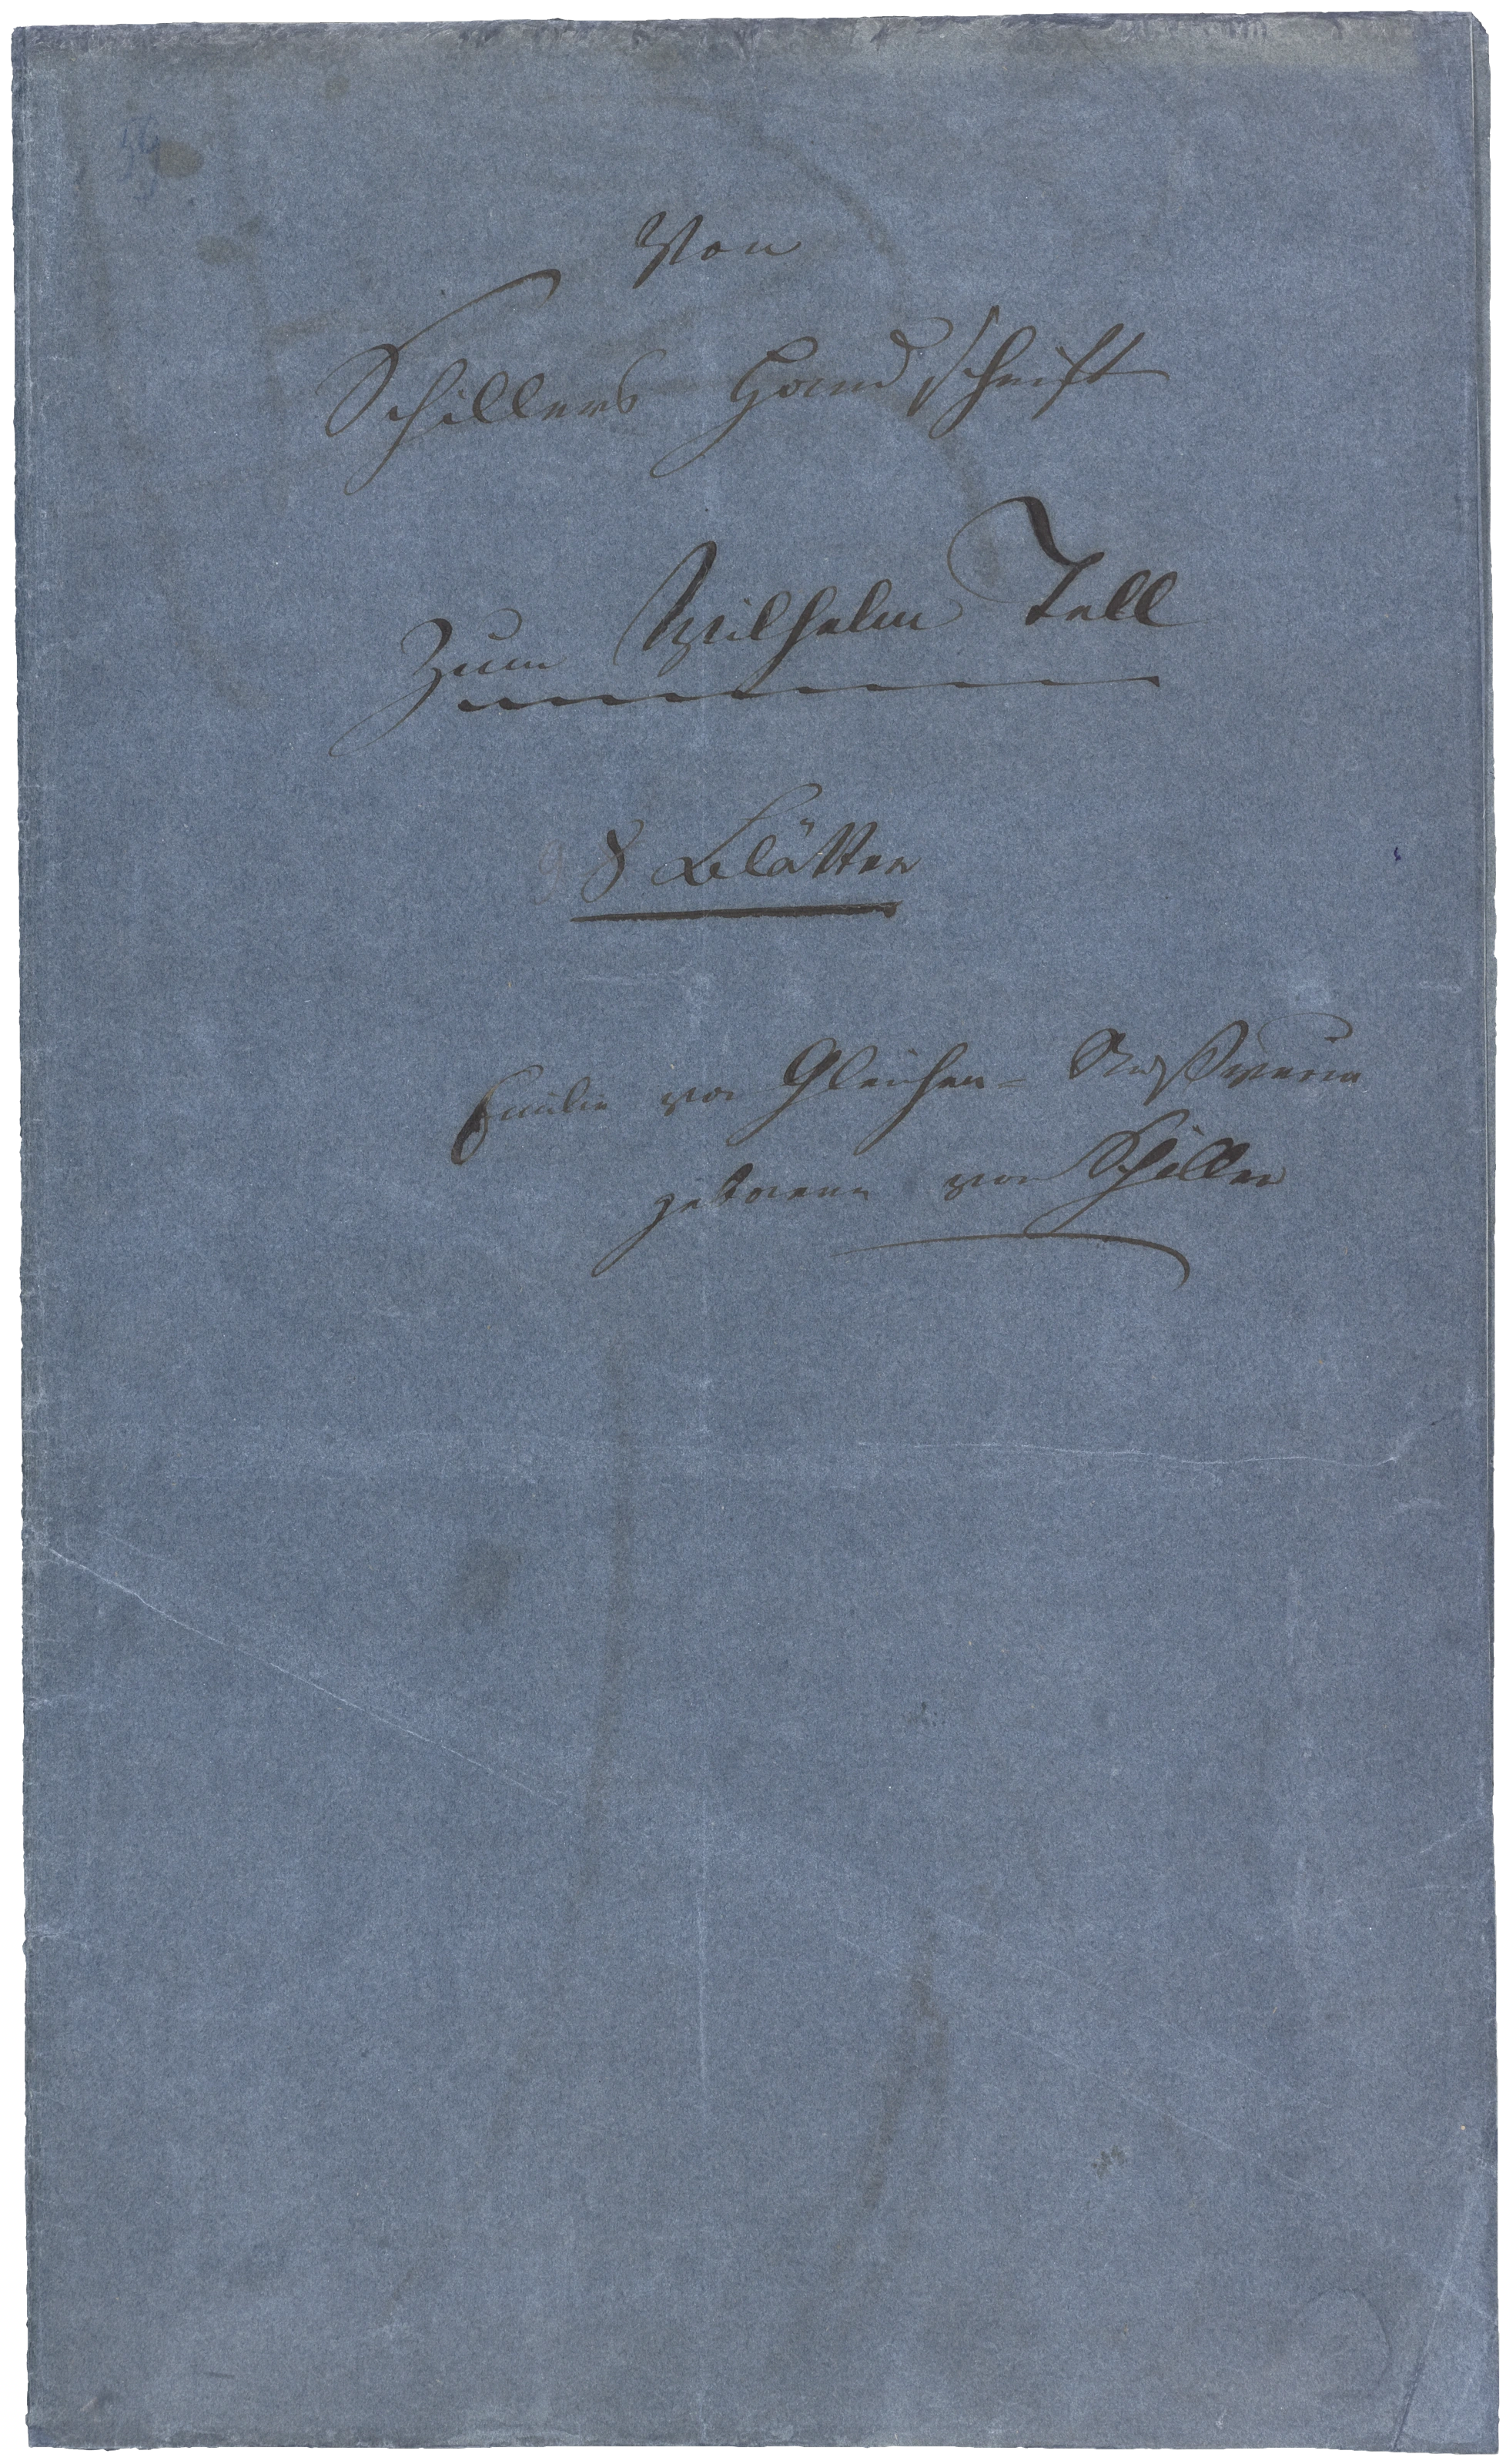 Von
Schillers Handschrift
Zum Wilhelm Tell
8 Blätter
Emilie von Gleichen-Rußwurm
geborene von Schiller